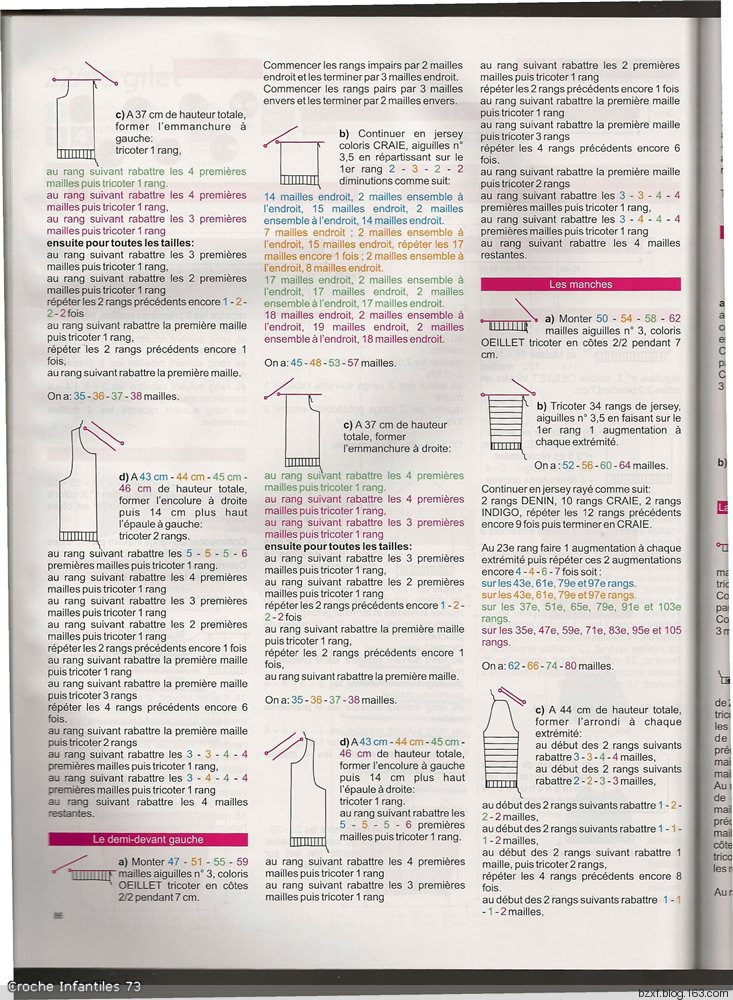 c) A 37 cm de hauteur totale,
former l'emmanchure à
gauche:
tricoter 1 rang,
au rang suivant rabattre les 4 premières
mailles puis tricoter 1 rang.
au rang suivant rabattre les 4 premières
mailles puis tricoter 1 rang,
au rang suivant rabattre les 3 premières
mailles puis tricoter 1 rang
ensuite pour toutes les tailles:
au rang suivant rabattre les 3 premières
mailles puis tricoter 1 rang,
au rang suivant rabattre les 2 premières
mailles puis tricoter 1 rang
répéter les 2 rangs précédents encore 1 - 2 -
2 - 2 fois
au rang suivant rabattre la première maille
puis tricoter 1 rang,
répéter les 2 rangs précédents encore 1
fois,
au rang suivant rabattre la première maille.
On a: 35 - 36 - 37 - 38 mailles.
d) A 43 cm - 44 cm - 45 cm -
46 cm de hauteur totale,
former l'encolure à droite
puis 14 cm plus haut
l'épaule à gauche:
tricoter 2 rangs.
au rang suivant rabattre les 5 - 5 - 5 - 6
premières mailles puis tricoter 1 rang.
au rang suivant rabattre les 4 premières
mailles puis tricoter 1 rang
au rang suivant rabattre les 3 premières
mailles puis tricoter 1 rang
au rang suivant rabattre les 2 premières
mailles puis tricoter 1 rang
répéter les 2 rangs précédents encore 1 fois
au rang suivant rabattre la première maille
puis tricoter 1 rang
au rang suivant rabattre la première maille
puis tricoter 3 rangs
répéter les 4 rangs précédents encore 6
fois.
au rang suivant rabattre la première maille
puis tricoter 2 rangs
au rang suivant rabattre les 3 - 3 - 4 - 4
premières mailles puis tricoter 1 rang,
au rang suivant rabattre les 3 - 4 - 4 - 4
premières mailles puis tricoter 1 rang
au rang suivant rabattre les 4 mailles
restantes.
Le demi-devant gauche
a) Monter 47 - 51 - 55 - 59
mailles aiguilles n° 3, coloris
OEILLET tricoter en côtes
2/2 pendant 7 cm.
86
Commencer les rangs impairs par 2 mailles
endroit et les terminer par 3 mailles endroit.
Commencer les rangs pairs par 3 mailles
envers et les terminer par 2 mailles envers.
b) Continuer en jersey
coloris CRAIE, aiguilles n°
3,5 en répartissant sur le
1er rang 2 - 3 - 2 - 2
diminutions comme suit:
14 mailles endroit, 2 mailles ensemble à
l'endroit, 15 mailles endroit, 2 mailles
ensemble à l'endroit, 14 mailles endroit.
7 mailles endroit ; 2 mailles ensemble à
l'endroit, 15 mailles endroit, répéter les 17
mailles encore 1 fois ; 2 mailles ensemble à
l'endroit, 8 mailles endroit.
17 mailles endroit, 2 mailles ensemble à
l'endroit, 17 mailles endroit, 2 mailles
ensemble à l'endroit, 17 mailles endroit.
18 mailles endroit, 2 mailles ensemble à
l'endroit, 19 mailles endroit, 2 mailles
ensemble à l'endroit, 18 mailles endroit.
On a: 45 - 48 - 53 - 57 mailles.
c) A 37 cm de hauteur
totale, former
l'emmanchure à droite:
au rang suivant rabattre les 4 premières
mailles puis tricoter 1 rang.
au rang suivant rabattre les 4 premières
mailles puis tricoter 1 rang,
au rang suivant rabattre les 3 premières
mailles puis tricoter 1 rang
ensuite pour toutes les tailles:
au rang suivant rabattre les 3 premières
mailles puis tricoter 1 rang,
au rang suivant rabattre les 2 premières
mailles puis tricoter 1 rang
répéter les 2 rangs précédents encore 1 - 2 -
2 - 2 fois
au rang suivant rabattre la première maille
puis tricoter 1 rang,
répéter les 2 rangs précédents encore 1
fois,
au rang suivant rabattre la première maille.
On a: 35 - 36 - 37 - 38 mailles.
d) A 43 cm - 44 cm - 45 cm -
46 cm de hauteur totale,
former l'encolure à gauche
puis 14 cm plus haut
l'épaule à droite:
tricoter 1 rang.
au rang suivant rabattre les
5 - 5 - 5 - 6 premières
mailles puis tricoter 1 rang.
au rang suivant rabattre les 4 premières
mailles puis tricoter 1 rang
au rang suivant rabattre les 3 premières
mailles puis tricoter 1 rang
au rang suivant rabattre les 2 premières
mailles puis tricoter 1 rang
répéter les 2 rangs précédents encore 1 fois
au rang suivant rabattre la première maille
puis tricoter 1 rang
au rang suivant rabattre la première maille
puis tricoter 3 rangs
répéter les 4 rangs précédents encore 6
fois.
au rang suivant rabattre la première maille
puis tricoter 2 rangs
au rang suivant rabattre les 3 - 3 - 4 - 4
premières mailles puis tricoter 1 rang,
au rang suivant rabattre les 3 - 4 - 4 - 4
premières mailles puis tricoter 1 rang
au rang suivant rabattre les 4 mailles
restantes.
Les manches
a) Monter 50 - 54 - 58 - 62
mailles aiguilles n° 3, coloris
OEILLET tricoter en côtes 2/2 pendant 7
cm.
b) Tricoter 34 rangs de jersey,
aiguilles n° 3,5 en faisant sur le
1er rang 1 augmentation à
chaque extrémité.
On a : 52 - 56 - 60 - 64 mailles.
Continuer en jersey rayé comme suit:
2 rangs DENIN, 10 rangs CRAIE, 2 rangs
INDIGO, répéter les 12 rangs précédents
encore 9 fois puis terminer en CRAIE.
Au 23e rang faire 1 augmentation à chaque
extrémité puis répéter ces 2 augmentations
encore 4 - 4 - 6 - 7 fois soit :
sur les 43e, 61e, 79e et 97e rangs.
sur les 43e, 61e, 79e et 97e rangs.
sur les 37e, 51e, 65e, 79e, 91e et 103e
rangs.
sur les 35e, 47e, 59e, 71e, 83e, 95e et 105
rangs.
On a : 62 - 66 - 74 - 80 mailles.
c) A 44 cm de hauteur totale,
former l'arrondi à chaque
extrémité:
au début des 2 rangs suivants
rabattre 3 - 3 - 4 - 4 mailles,
au début des 2 rangs suivants
rabattre 2 - 2 - 3 - 3 mailles,
au début des 2 rangs suivants rabattre 1 - 2 -
2 - 2 mailles,
au début des 2 rangs suivants rabattre 1 - 1 -
1 - 2 mailles,
au début des 2 rangs suivants rabattre 1
maille, puis tricoter 2 rangs,
répéter les 4 rangs précédents encore 8
fois.
au début des 2 rangs suivants rabattre 1 - 1
- 1 - 2 mailles,
b)
Croche Infantiles 73
bzxf.blog.163.com